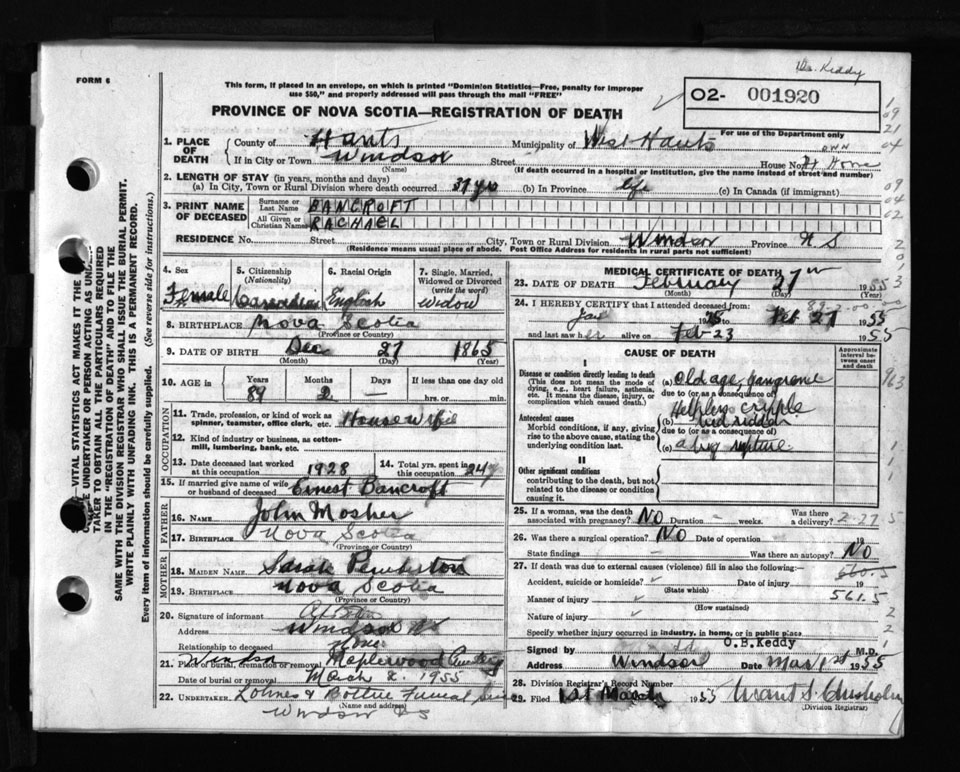 FORM 6
Dr. Keddy
This form, if placed in an envelope, on which is printed "Dominion Statistics—Free, penalty for improper
use $50," and properly addressed will pass through the mail "FREE"
PROVINCE OF NOVA SCOTIA—REGISTRATION OF DEATH
02- 001920
For use of the Department only
1. PLACE OF DEATH
County of Hants Municipality of West Hants
If in City or Town Windsor Street House No. At Home
(Name) (If death occurred in a hospital or institution, give the name instead of street and number)
2. LENGTH OF STAY (in years, months and days)
(a) In City, Town or Rural Division where death occurred 37 yrs (b) In Province life (c) In Canada (if immigrant)
3. PRINT NAME OF DECEASED
Surname or Last Name BANCROFT
All Given or Christian Names RACHAEL
RESIDENCE No. Street City, Town or Rural Division Windsor Province N S
(Residence means usual place of abode. Post Office Address for residents in rural parts not sufficient)
4. Sex Female
5. Citizenship (Nationality) Canadian
6. Racial Origin English
7. Single, Married, Widowed or Divorced (write the word) Widow
8. BIRTHPLACE Nova Scotia
(Province or Country)
9. DATE OF BIRTH Dec 27 1865
(Month) (Day) (Year)
10. AGE in Years Months Days If less than one day old
89 2 — hrs. or min.
OCCUPATION
11. Trade, profession, or kind of work as spinner, teamster, office clerk, etc. Housewife
12. Kind of industry or business, as cotton-mill, lumbering, bank, etc.
13. Date deceased last worked at this occupation 1928
14. Total yrs. spent in this occupation 24
15. If married give name of wife or husband of deceased Ernest Bancroft
FATHER
16. NAME John Mosher
17. BIRTHPLACE Nova Scotia
(Province or Country)
MOTHER
18. MAIDEN NAME Sarah Pemberton
19. BIRTHPLACE Nova Scotia
(Province or Country)
20. Signature of informant
Address Windsor NS
Relationship to deceased
21. Place of burial, cremation or removal Windsor Maplewood Cemetery
Date of burial or removal March 2. 1955
22. UNDERTAKER Lohnes & Funeral
(Name and address)
Windsor NS
MEDICAL CERTIFICATE OF DEATH
23. DATE OF DEATH February 27th 1955
(Month) (Day)
24. I HEREBY CERTIFY that I attended deceased from
Jan to Feb 27 1955
and last saw her alive on Feb-23 1955
CAUSE OF DEATH
Approximate interval between onset and death
I
Disease or condition directly leading to death
(This does not mean the mode of dying, e.g., heart failure, asthenia, etc. It means the disease, injury, or complication which caused death.)
(a) Old age, gangrene
due to (or as a consequence of)
Helpless cripple
Antecedent causes
Morbid conditions, if any, giving rise to the above cause, stating the underlying condition last.
(b) bed ridden
due to (or as a consequence of)
(c) a big rupture.
II
Other significant conditions
contributing to the death, but not related to the disease or condition causing it.
25. If a woman, was the death associated with pregnancy? NO Duration — weeks. Was there a delivery?
2-27-5
26. Was there a surgical operation? NO Date of operation 19
State findings — Was there an autopsy? No
27. If death was due to external causes (violence) fill in also the following:—
660.5
Accident, suicide or homicide? Date of injury 19
(State which)
561.5
Manner of injury
(How sustained)
Nature of injury
Specify whether injury occurred in industry, in home, or in public place
Signed by O.B.Keddy M.D.
Address Windsor Date Mar 1st 1955
28. Division Registrar's Record Number
29. Filed 1st March 1955 Grant S. Chisholm
(Division Registrar)
VITAL STATISTICS ACT MAKES IT THE
UNDERTAKER OR PERSON ACTING AS UNDER-
TAKER TO OBTAIN ALL THE PARTICULARS REQUIRED
IN THE "REGISTRATION OF DEATH" AND TO FILE THE
SAME WITH THE DIVISION REGISTRAR WHO SHALL ISSUE THE BURIAL PERMIT.
WRITE PLAINLY WITH UNFADING INK. THIS IS A PERMANENT RECORD.
Every item of information should be carefully supplied. (See reverse side for instructions.)